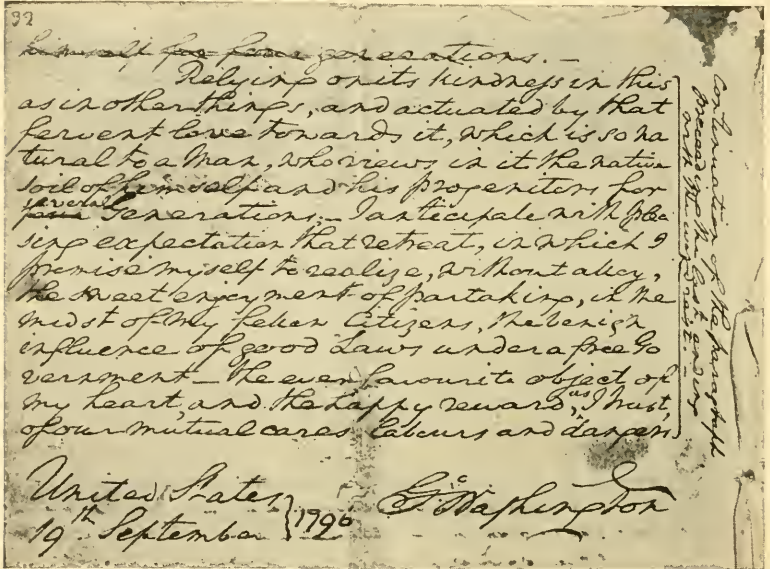 32
himself for four generations. —
Relying on its kindness in this
as in other things, and actuated by that
fervent love towards it, which is so na
tural to a Man, who views in it the native
soil of himself and his progenitors for
several
four Generations; — I anticipate with plea
sing expectation that retreat, in which I
promise myself to realize, without alloy,
the sweet enjoyment of partaking, in the
midst of my fellow Citizens, the benign
influence of good Laws under a free Go
vernment — the ever favourite object of
my heart, and the happy reward, as I trust,
of our mutual cares labours and dangers
United States
19th September } 1796
Go Washington
Continuation of the paragraph
preceding the last ending
with the word rest. —